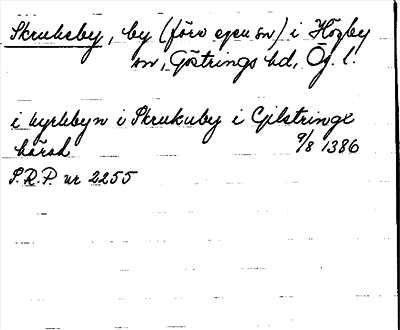 Skruksby, by (förv egen sn) i Högby
sn, Göstrings hd, Ög. l.
i kyrkbyn i Skrukuby i Gilstringx
härad 9/8 1386
S.R.P. nr 2255